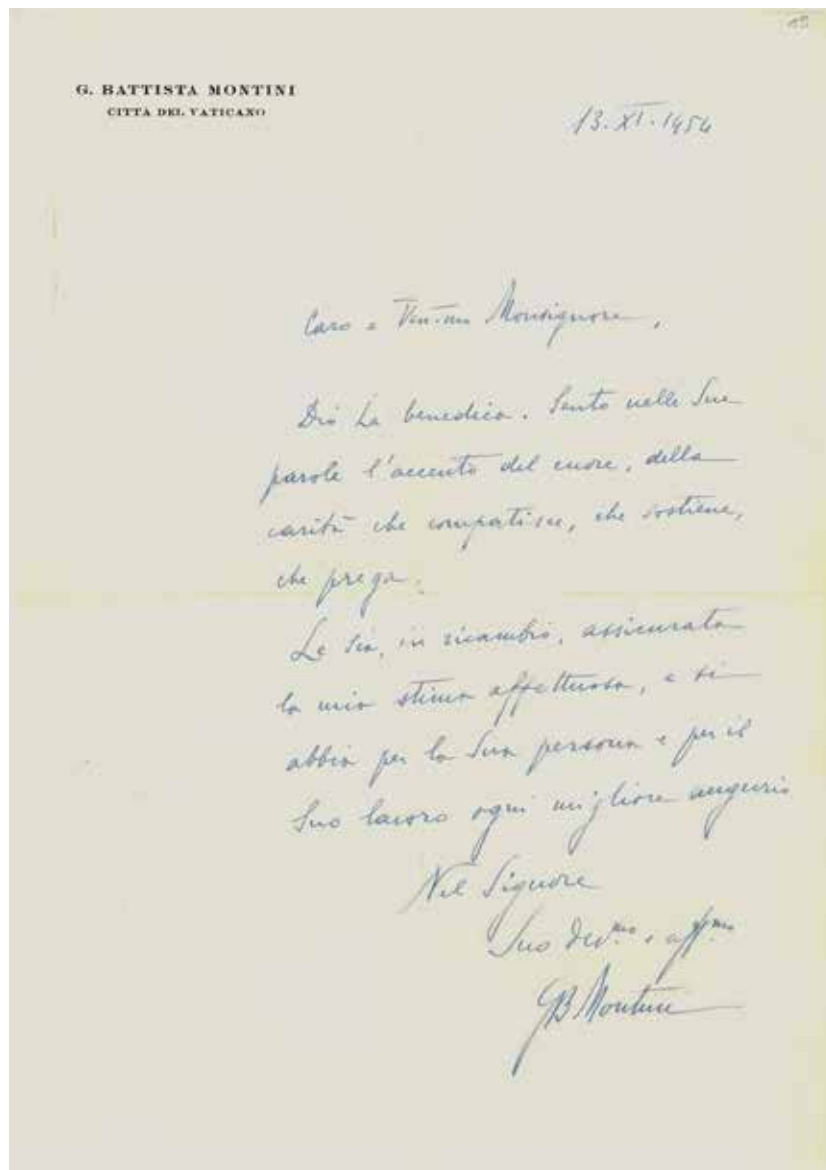 19
G. BATTISTA MONTINI
CITTÀ DEL VATICANO
13.XI.1954
Caro e Ven.mo Monsignore,
Dio La benedica. Sento nelle Sue
parole l'accento del cuore, della
carità che compatisce, che sostiene,
che prega.
Le sia, in ricambio, assicurata
la mia stima affettuosa, e si
abbia per la Sua persona e per il
Suo lavoro ogni migliore augurio
Nel Signore
Suo dev.mo e aff.mo
GB Montini